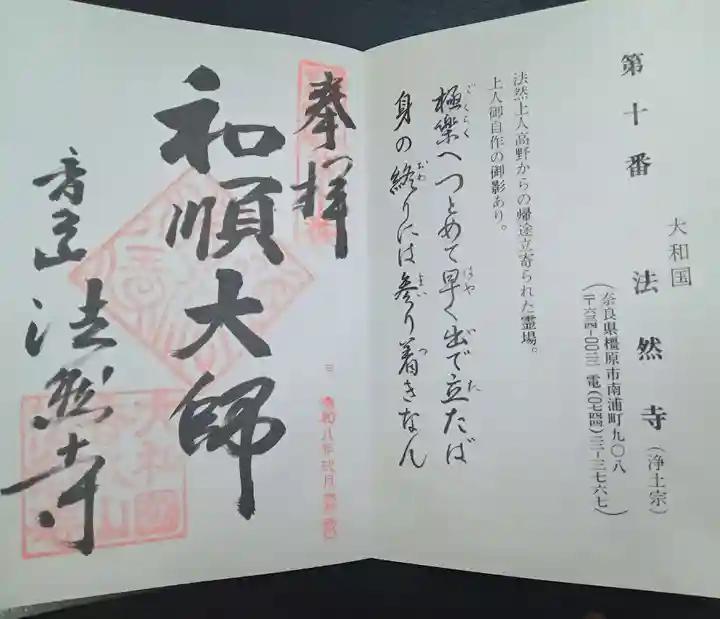 第十番
大和国
法然寺(浄土宗)
(奈良県橿原市南浦町九〇八
〒六三四-〇〇三二 電(〇七四四)二二-三七六七)
法然上人高野からの帰途立寄られた霊場。
上人御自作の御影あり。
極楽へつとめて早く出で立たば
ごくらく はや い た
身の終りには参り着きなん
おわ まい つ
奉拝
和順大師
法然寺
令和八年